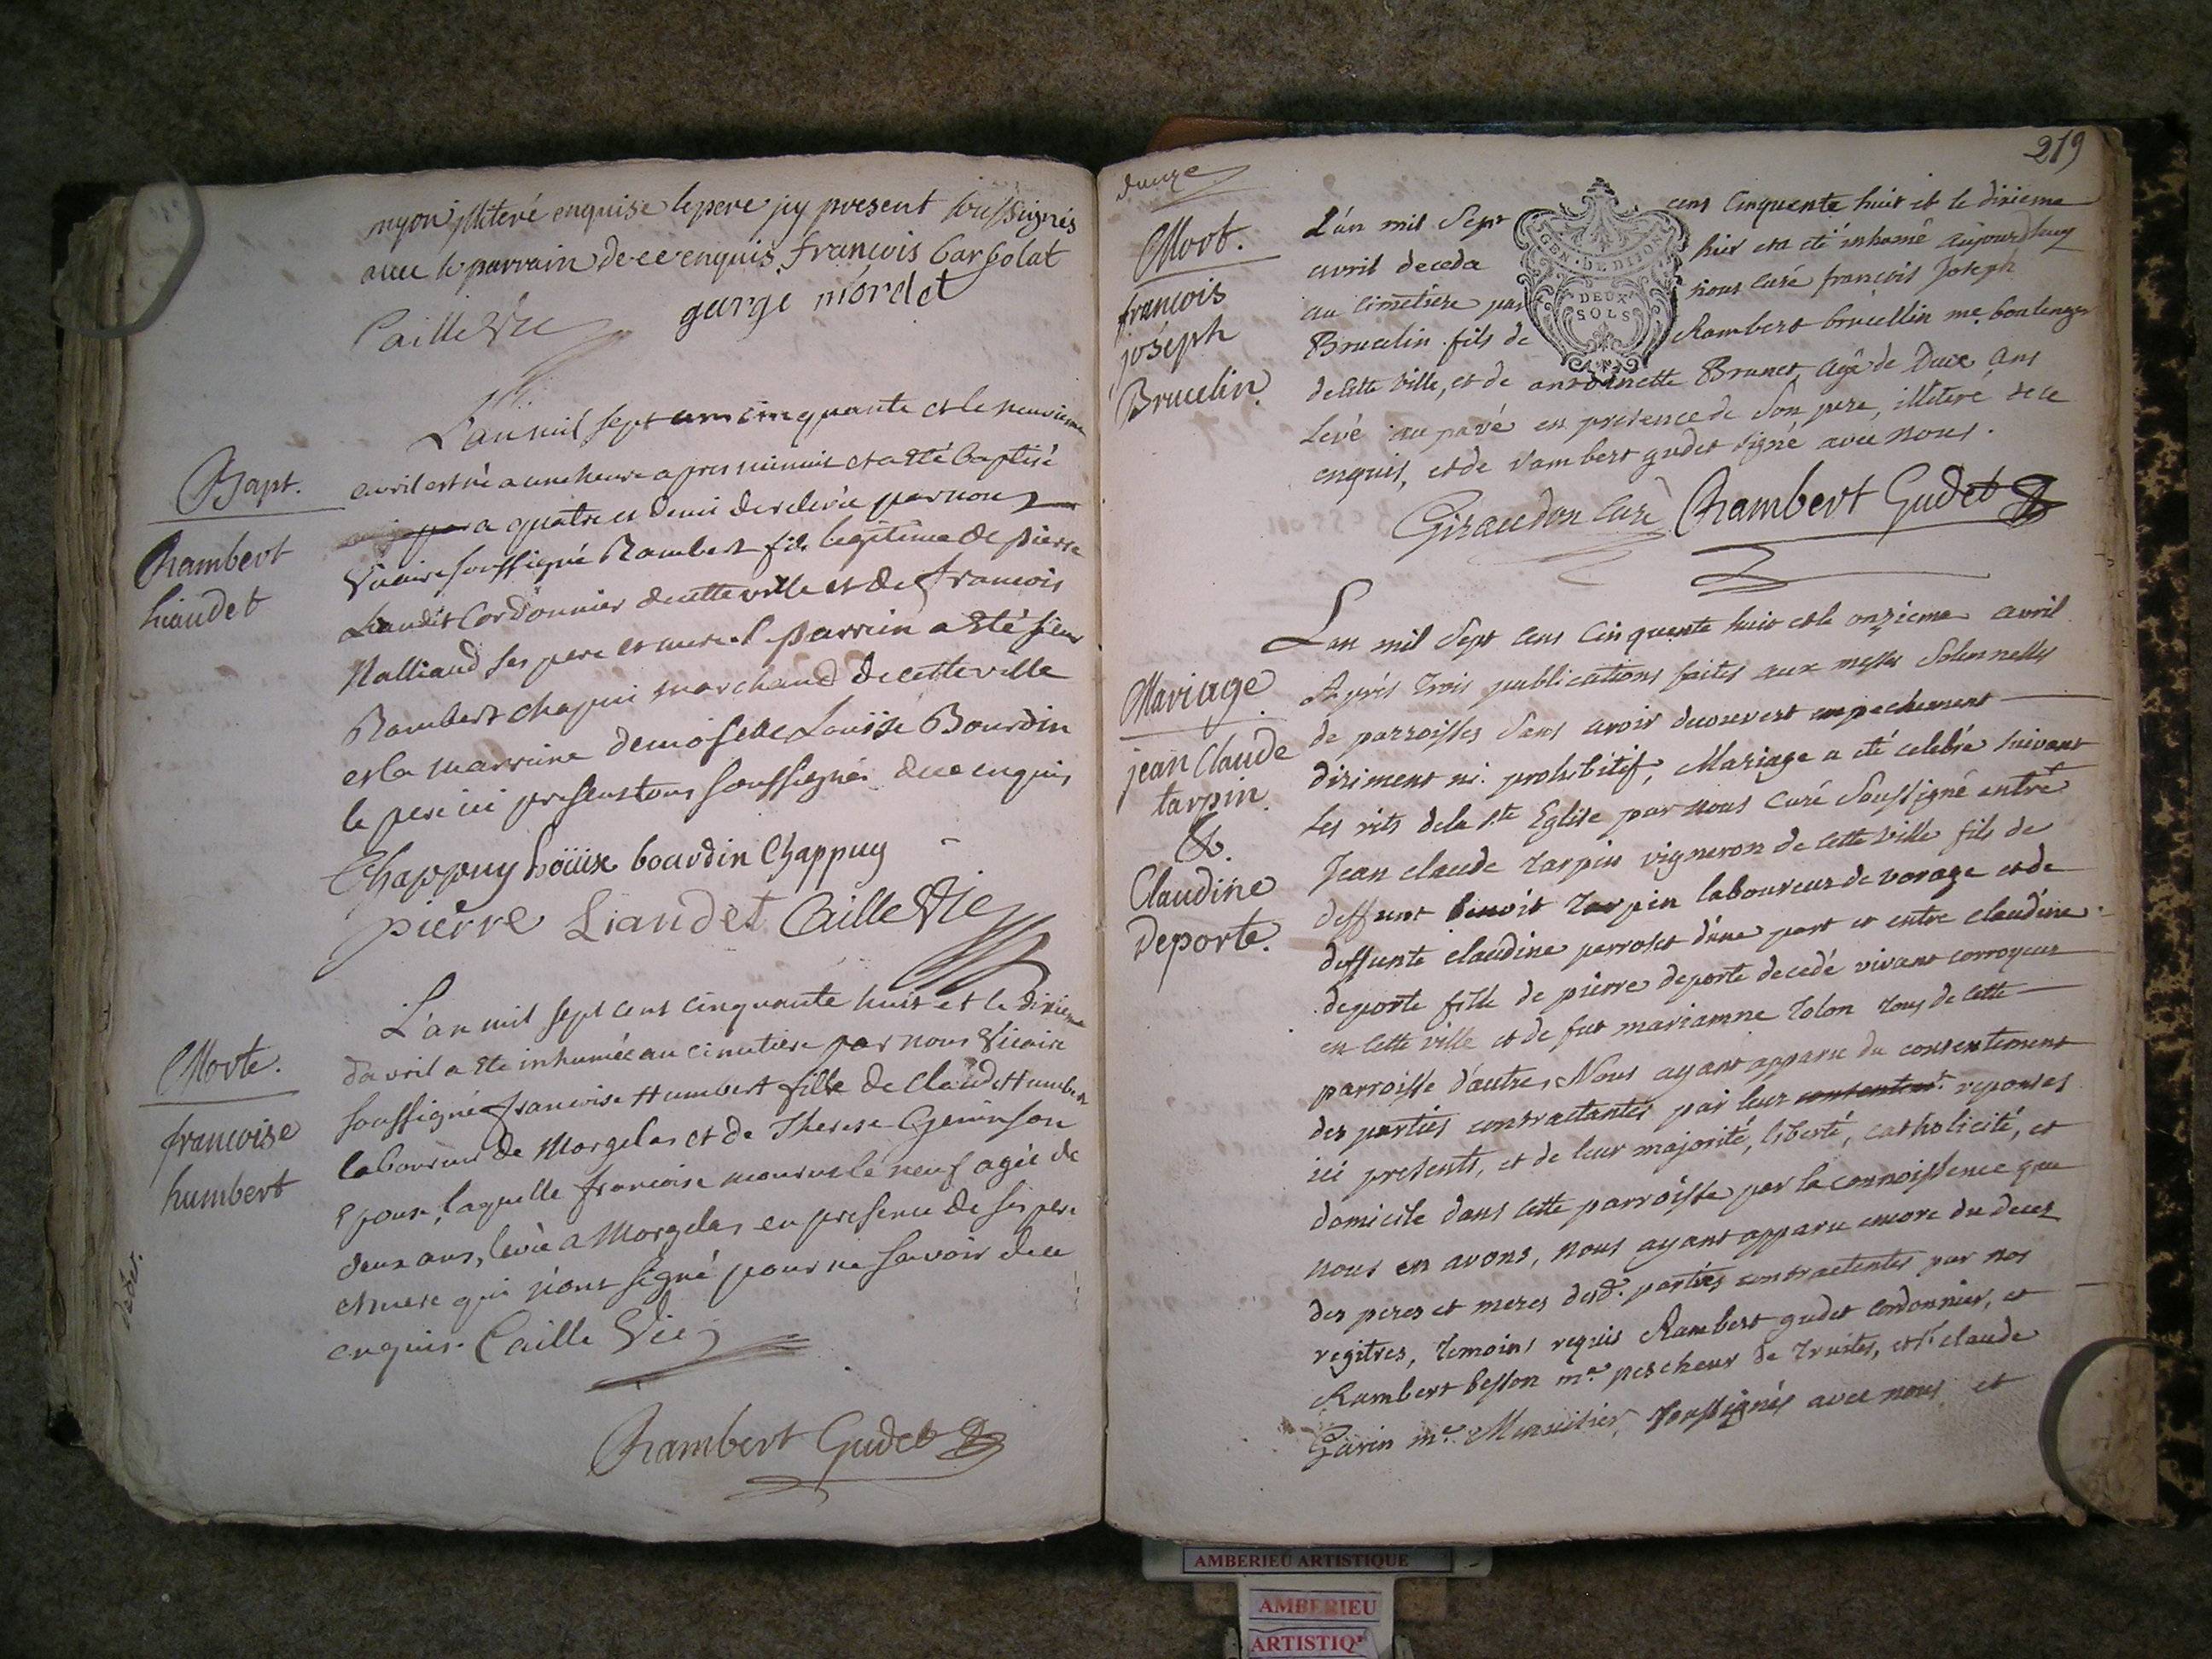 myon illiteré enquise le pere jcy present soussignés
avec le parrain de ce enquis. françois Cargolat
george mordet
Caille Vic

Bapt.
Rambert
liaudet
L'an mil sept cens cinquante et le neuvieme
avril est né a une heure apres minuit et a esté baptisé
a quatre et demi de relevée par nous
Vicaire soussigné Rambert fils legitime de pierre
Liaudet Cordonnier de cette ville et de francois
Nalliand ses pere et mere. Le parrein a esté sieur
Rambert chapui marchand de cette ville
et la marrine demoiselle Louise Bourdin
le pere ici present tous soussignés de ce enquis
Chappuy Loüise bourdin Chappuy
pierre Liaudet Caille Vic

Morte.
francoise
humbert
L'an mil sept cent cinquante huit et le dixieme
d'avril a eté inhumée au cimetiere par nous Vicaire
soussigné francoise Humbert fille de Claude Humbert
laboureur de Morgelas et de Therese Geninson
Epoux, laquelle francoise mourut le neuf agée de
deux ans, levée a Morgelas en presence de ses pere
et mere qui n'ont signé pour ne savoir de ce
enquis. Caille Vic
Rambert Gudet

219
douze
Mort.
francois
joseph
Brucelin.
L'an mil Sept cens Cinquente huit et le dixieme
avril deceda hier et a eté inhumé aujourdhuy
au Cimetiere par nous curé françois Joseph
Brucelin fils de Rambert brucellin me. boulenger
de cette ville, et de antoinette Brunet agé de Deux ans
Levé au pavé en presence de son pere, illiteré de ce
enquis, et de rambert gudet signé avec nous.
Giraudon Curé Rambert Gudet
GEN. DE DIJON
DEUX
SOLS

Mariage.
jean Claude
tarpin.
&.
Claudine
Deporte.
L'an mil Sept cens Cinquente huit et le onzieme avril
Aprés trois publications faites aux messes Solennelles
de parroisses Sans avoir decouvert empechement
diriment ni prohibitif, Mariage a eté celebré suivant
les rits de la ste Eglise par nous Curé Soussigné entre
Jean claude Tarpin vigneron de cette ville fils de
deffunt benoit Tarpin laboureur de vorage et de
deffunte claudine perroset d'une part et entre claudine
deporte fille de pierre deporte decedé vivant corroyeur
en cette ville et de fut mariamne Tolon tous de cette
parroisse d'autre, Nous ayant apparu du consentement
des parties contractantes par leur consentmt. reponses
ici presents, et de leur majorité, liberté, catholicité, et
domicile dans cette parroisse par la connoissence que
nous en avons, nous ayant apparu encore du decez
des peres et meres desd. parties contractentes par nos
regitres, temoins requis Rambert gudet cordonnier, et
Rambert besson me. pescheur de truites, et sr. claude
Garin me. Menuisier, soussignés avec nous et

AMBERIEU ARTISTIQUE
AMBERIEU
ARTISTIQ